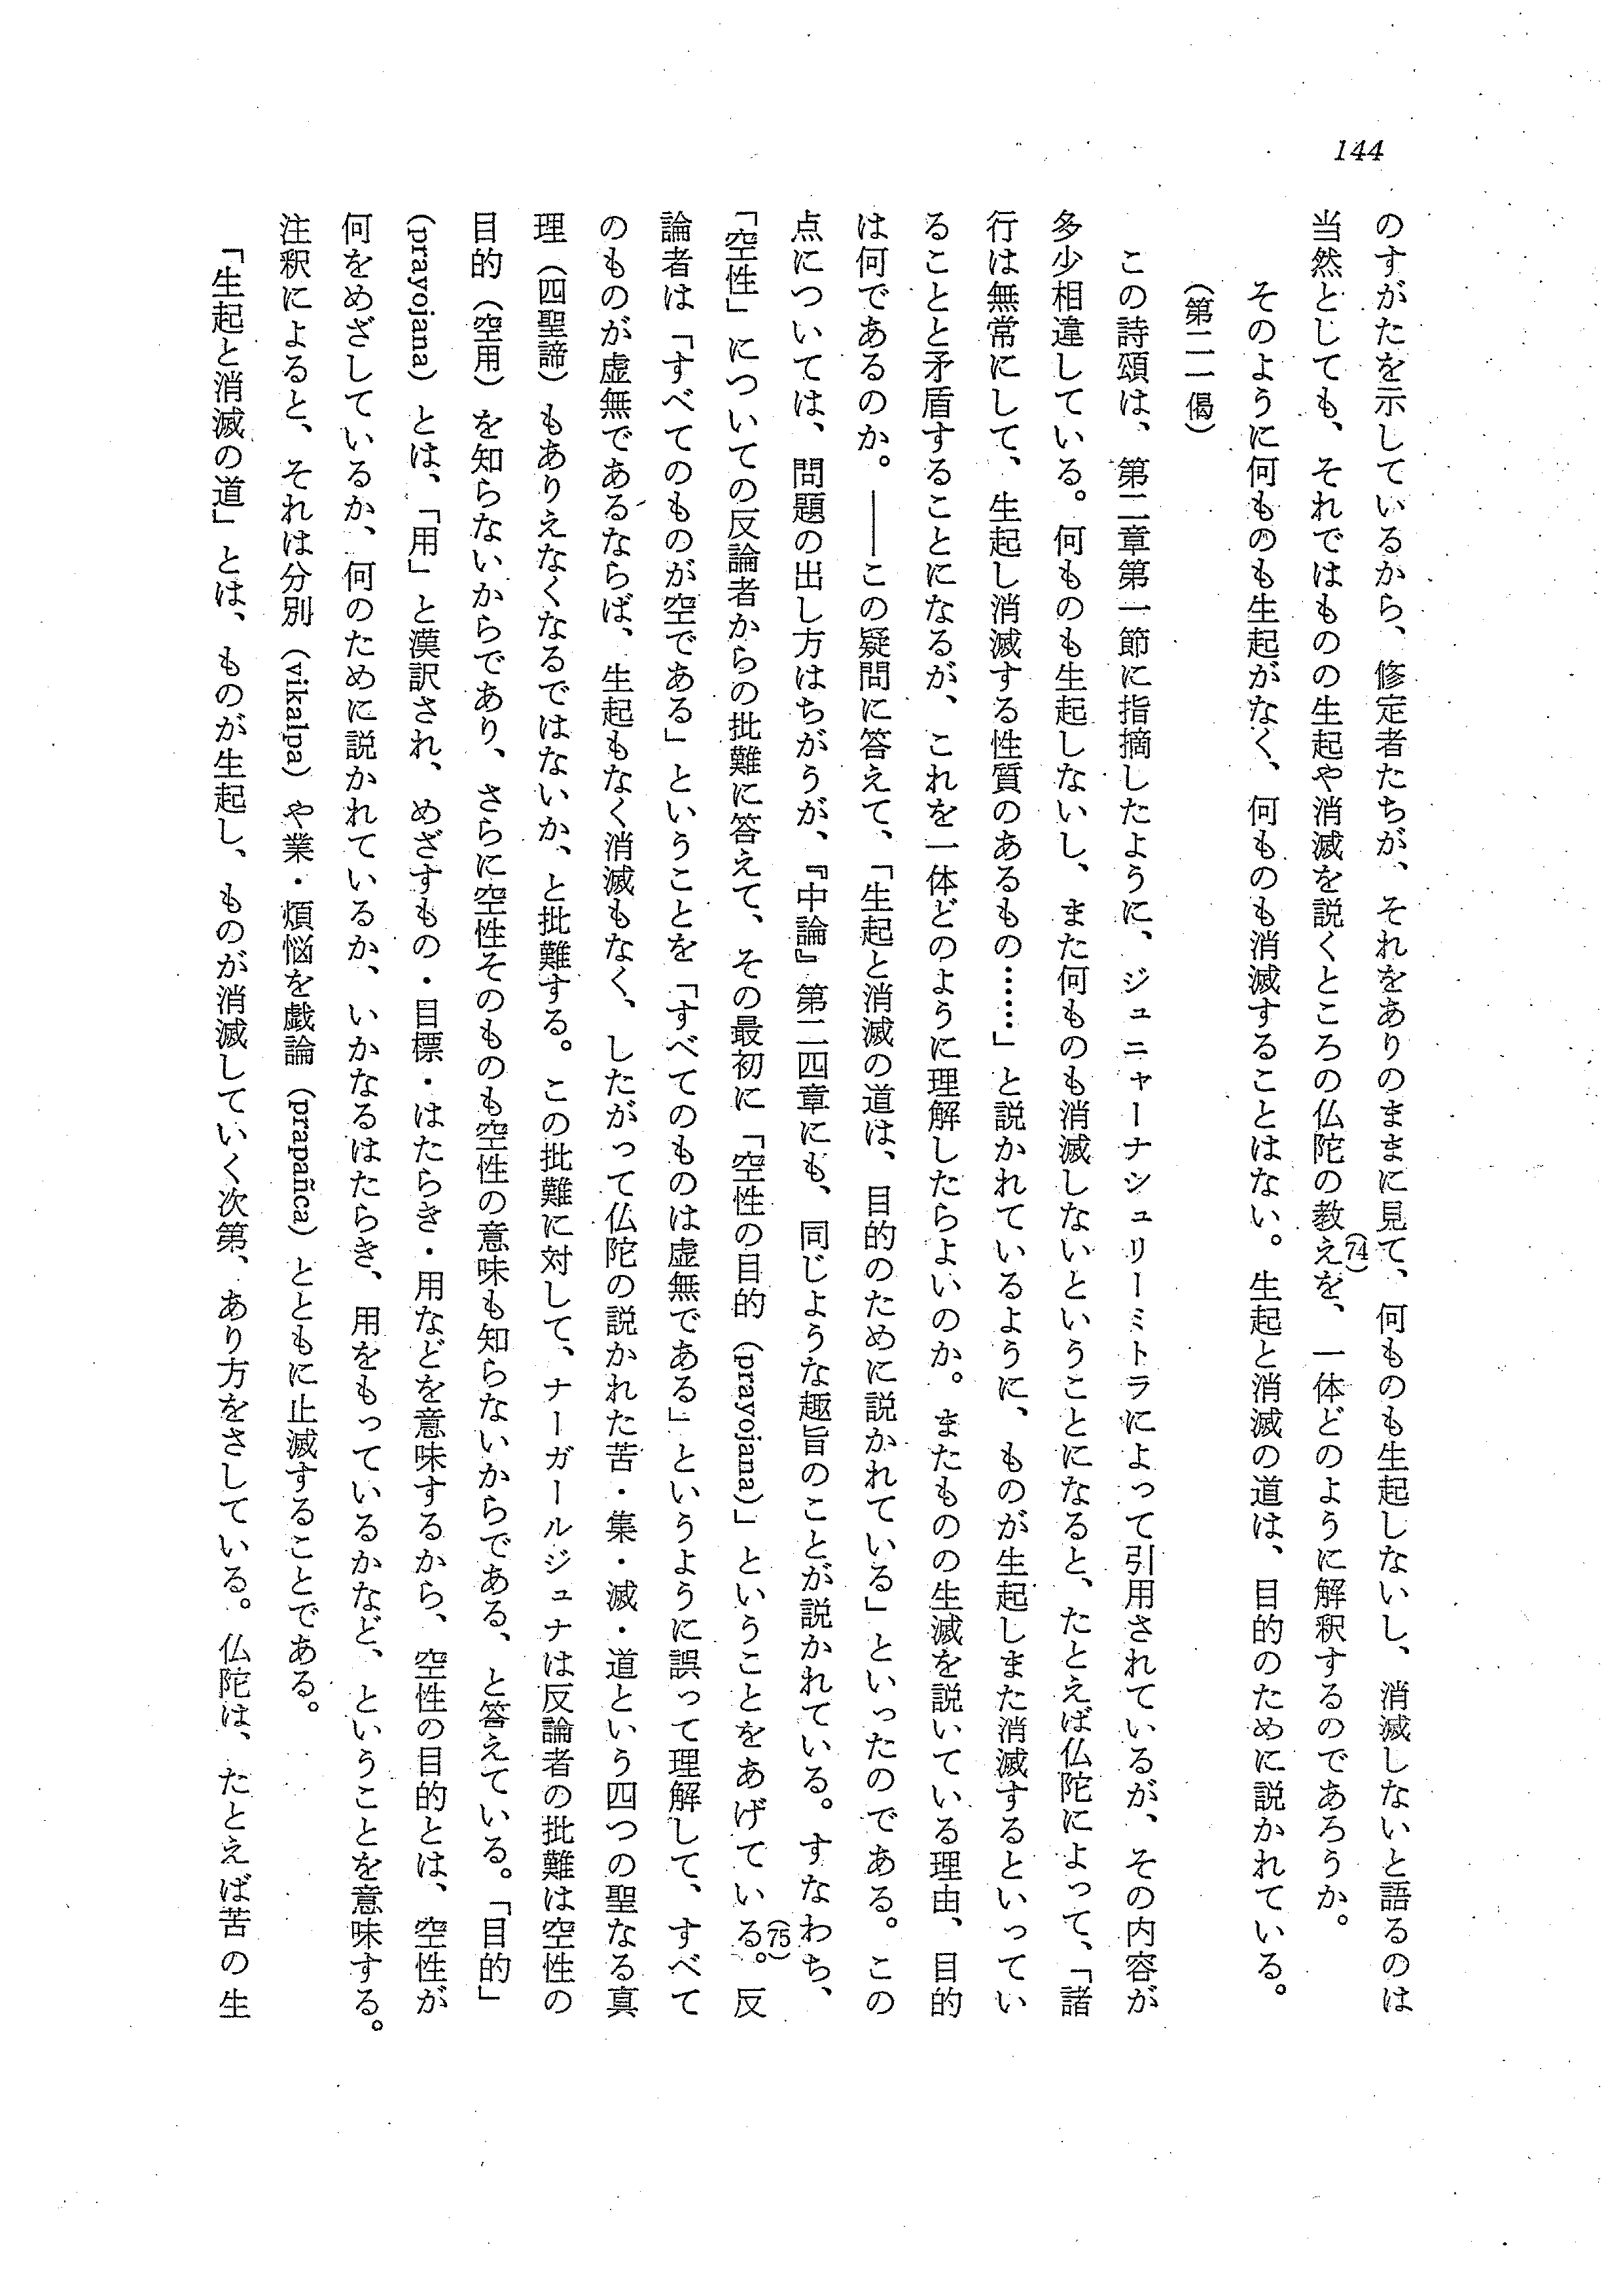 144
のすがたを示しているから、修定者たちが、それをありのままに見て、何ものも生起しないし、消滅しないと語るのは
当然としても、それではものの生起や消滅を説くところの仏陀の教え(74)を、一体どのように解釈するのであろうか。
そのように何ものも生起がなく、何ものも消滅することはない。生起と消滅の道は、目的のために説かれている。
（第二一偈）
この詩頌は、第二章第一節に指摘したように、ジュニャーナシュリーミトラによって引用されているが、その内容が
多少相違している。何ものも生起しないし、また何ものも消滅しないということになると、たとえば仏陀によって、「諸
行は無常にして、生起し消滅する性質のあるもの……」と説かれているように、ものが生起しまた消滅するといってい
ることと矛盾することになるが、これを一体どのように理解したらよいのか。またものの生滅を説いている理由、目的
は何であるのか。――この疑問に答えて、「生起と消滅の道は、目的のために説かれている」といったのである。この
点については、問題の出し方はちがうが、『中論』第二四章にも、同じような趣旨のことが説かれている。すなわち、
「空性」についての反論者からの批難に答えて、その最初に「空性の目的（prayojana）」ということをあげている(75)。反
論者は「すべてのものが空である」ということを「すべてのものは虚無である」というように誤って理解して、すべて
のものが虚無であるならば、生起もなく消滅もなく、したがって仏陀の説かれた苦・集・滅・道という四つの聖なる真
理（四聖諦）もありえなくなるではないか、と批難する。この批難に対して、ナーガールジュナは反論者の批難は空性の
目的（空用）を知らないからであり、さらに空性そのものも空性の意味も知らないからである、と答えている。「目的」
（prayojana）とは、「用」と漢訳され、めざすもの・目標・はたらき・用などを意味するから、空性の目的とは、空性が
何をめざしているか、何のために説かれているか、いかなるはたらき、用をもっているかなど、ということを意味する。
注釈によると、それは分別（vikalpa）や業・煩悩を戯論（prapañca）とともに止滅することである。
「生起と消滅の道」とは、ものが生起し、ものが消滅していく次第、あり方をさしている。仏陀は、たとえば苦の生